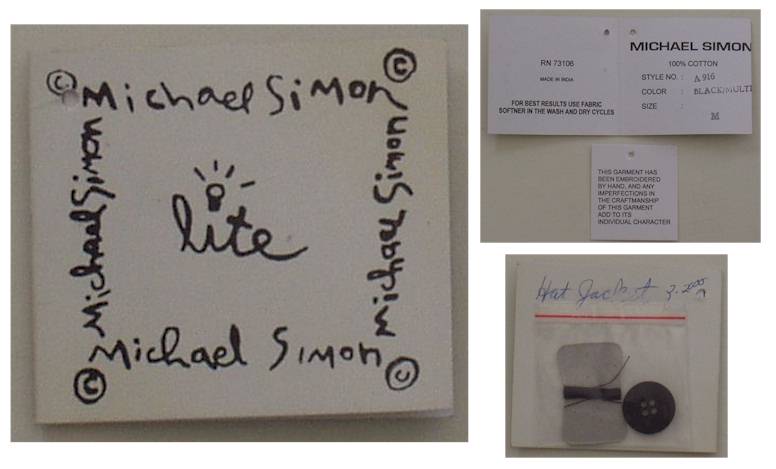 © Michael Simon ©
Michael Simon
Michael Simon
lite
© Michael Simon ©
RN 73106
MADE IN INDIA
FOR BEST RESULTS USE FABRIC
SOFTNER IN THE WASH AND DRY CYCLES
MICHAEL SIMON
100% COTTON
STYLE NO. : A916
COLOR : BLACK/MULTI
SIZE :
M
THIS GARMENT HAS
BEEN EMBROIDERED
BY HAND, AND ANY
IMPERFECTIONS IN
THE CRAFTMANSHIP
OF THIS GARMENT
ADD TO ITS
INDIVIDUAL CHARACTER
Hat Jacket